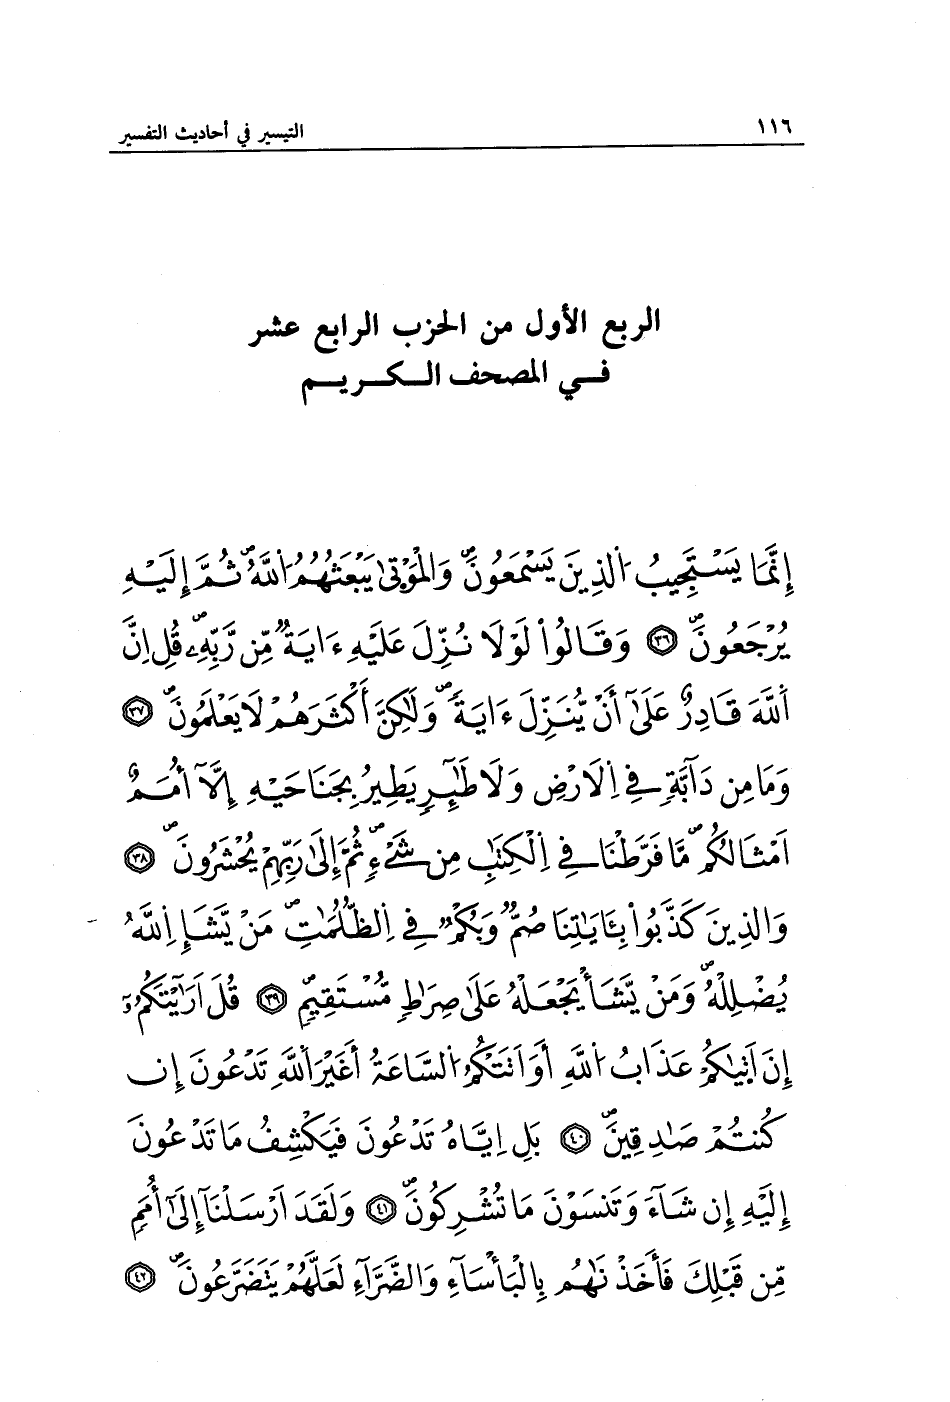 ١١٦
التيسير في أحاديث التفسير
الربع الأول من الحزب الرابع عشر
في المصحف الكريم
إِنَّمَا يَسْتَجِيبُ اَلذِينَ يَسْمَعُونَۖ وَالْمَوْتٰى يَبْعَثُهُمُ اَللَّهُۖ ثُمَّ إِلَيْهِ
يُرْجَعُونَۖ ٣٦ وَقَالُواْ لَوْلَا نُزِّلَ عَلَيْهِ ءَايَةٌ مِّن رَّبِّهِۦۖ قُلِ اِنَّ
اَللَّهَ قَادِرٌ عَلَىٰٓ أَنْ يُّنَزِّلَ ءَايَةًۖ وَلَٰكِنَّ أَكْثَرَهُمْ لَا يَعْلَمُونَۖ ٣٧
وَمَا مِن دَآبَّةٍ فِي اِلَارْضِ وَلَا طَٰٓئِرٍ يَطِيرُ بِجَنَاحَيْهِ إِلَّآ أُمَمٌ
اَمْثَالُكُمۖ مَّا فَرَّطْنَا فِي اِلْكِتَٰبِ مِن شَيْءٍۖ ثُمَّ إِلَىٰ رَبِّهِمْ يُحْشَرُونَۖ ٣٨
وَالذِينَ كَذَّبُواْ بِـَٔايَٰتِنَا صُمٌّ وَبُكْمٌ فِي اِلظُّلُمَٰتِۖ مَنْ يَّشَإِ اِللَّهُ
يُضْلِلْهُۖ وَمَنْ يَّشَأْ يَجْعَلْهُ عَلَىٰ صِرَٰطٍ مُّسْتَقِيمٍۖ ٣٩ قُلَ اَرَٰيْتَكُمُۥٓ
إِنَ اَتٰىكُمْ عَذَابُ اُللَّهِ أَوَ اَتَتْكُمُ اُلسَّاعَةُ أَغَيْرَ اَللَّهِ تَدْعُونَ إِن
كُنتُمْ صَٰدِقِينَۖ ٤٠ بَلِ اِيَّاهُ تَدْعُونَ فَيَكْشِفُ مَا تَدْعُونَ
إِلَيْهِ إِن شَآءَ وَتَنسَوْنَ مَا تُشْرِكُونَۖ ٤١ وَلَقَدَ اَرْسَلْنَآ إِلَىٰٓ أُمَمٍ
مِّن قَبْلِكَ فَأَخَذْنَٰهُم بِالْبَأْسَآءِ وَالضَّرَّآءِ لَعَلَّهُمْ يَتَضَرَّعُونَۖ ٤٢